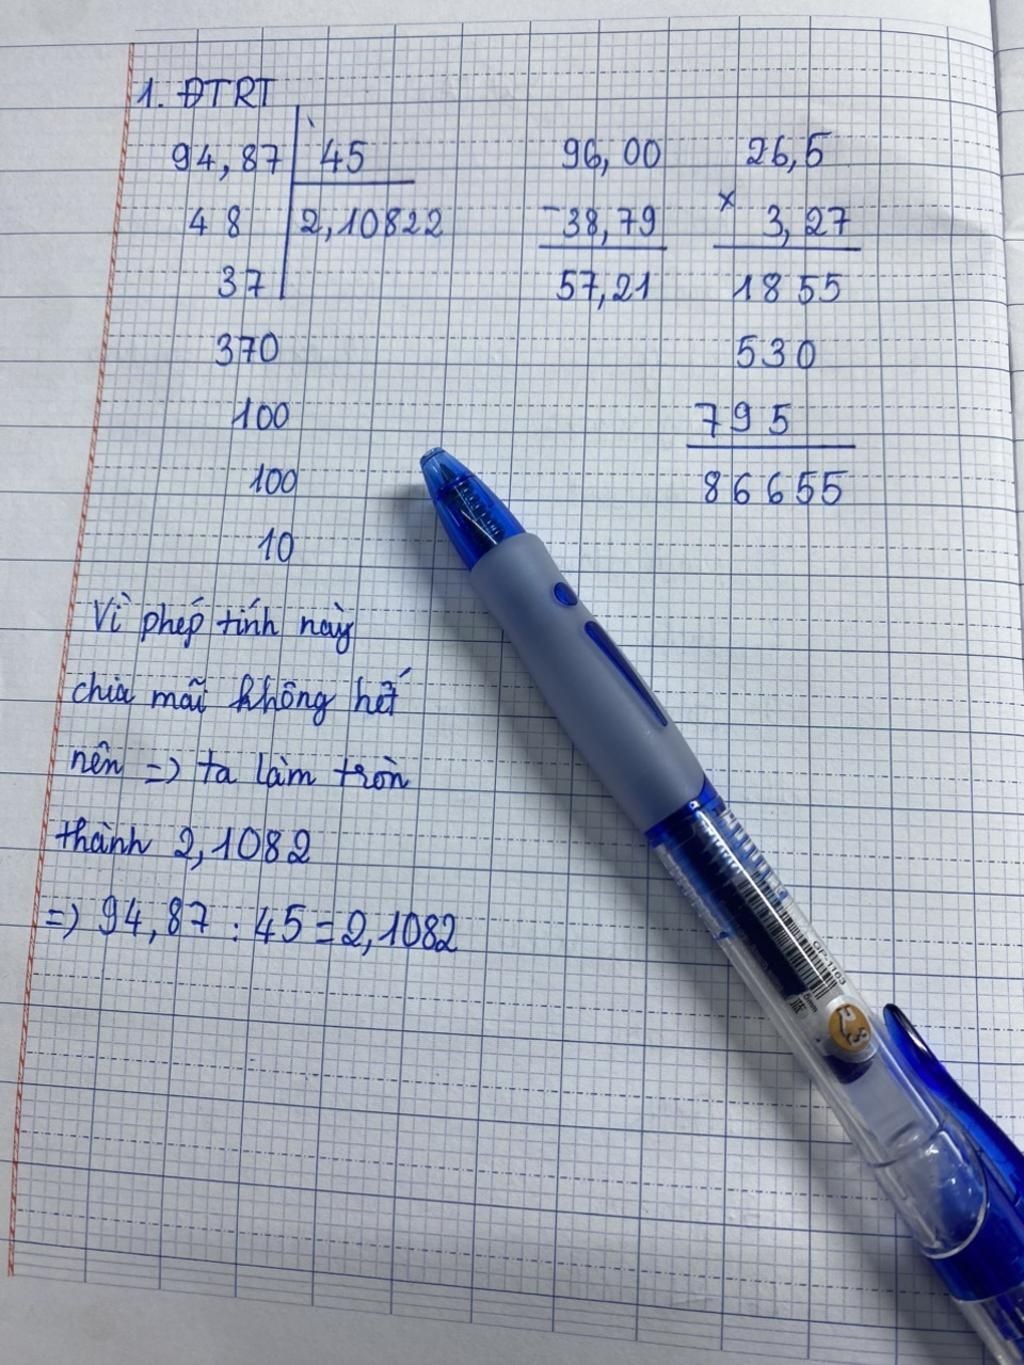 1. ĐTRT
94,87 45
48 2,10822
37
370
100
100
10
96,00
-38,79
57,21
26,5
x 3,27
1855
530
795
86655
Vì phép tính này
chia mãi không hết
nên => ta làm tròn
thành 2,1082
=> 94,87 : 45 = 2,1082